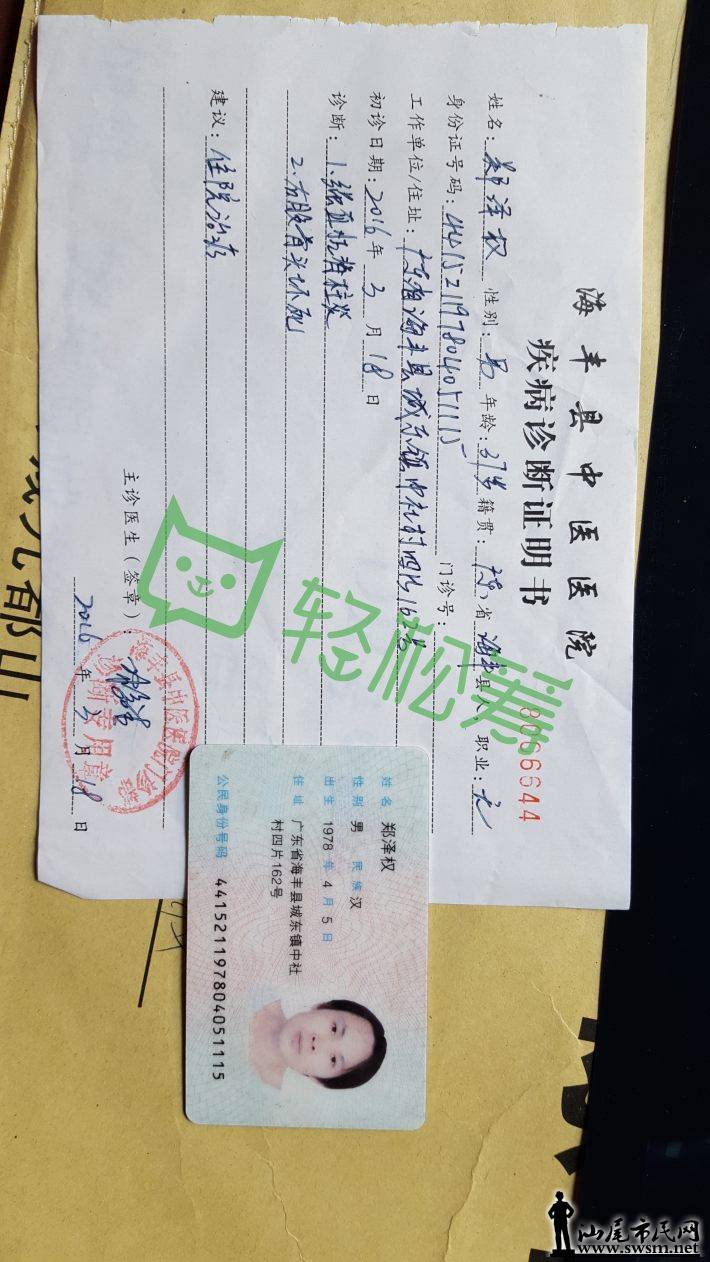 海丰县中医医院
疾病诊断证明书
8066644
姓名：郑泽权 性别：男 年龄：37岁 籍贯：广东省海丰县人，职业：无
身份证号码：441521197804051115 门诊号：
工作单位/住址：广东省海丰县城东镇中社村四片162号
初诊日期：2016年3月18日
诊断：1.强直性脊柱炎
2.右股骨头坏死
建议：住院治疗
主诊医生（签章）：
2016年3月18日
轻松筹
姓名 郑泽权
性别 男 民族 汉
出生 1978年4月5日
住址 广东省海丰县城东镇中社
村四片162号
公民身份号码 441521197804051115
汕尾市民网
www.swsm.net